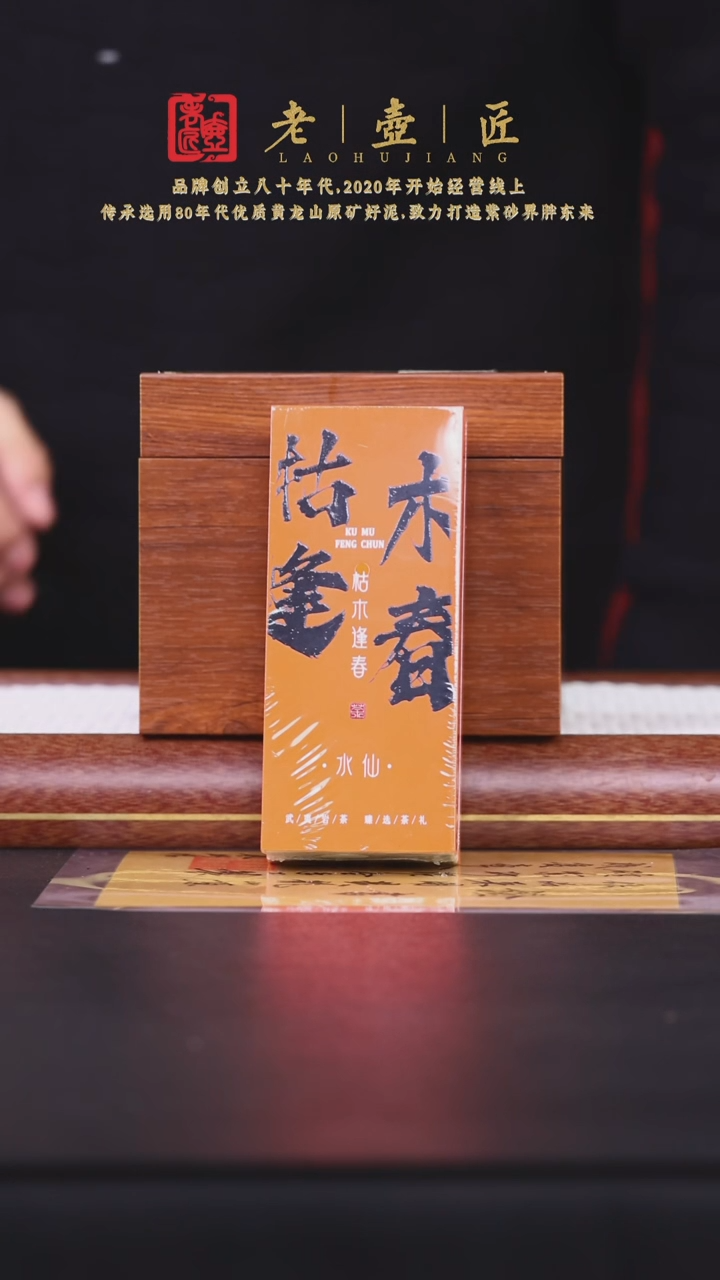 老壶匠
老|壺|匠
LAOHUJIANG
品牌创立八十年代,2020年开始经营线上
传承选用80年代优质黄龙山原矿好泥,致力打造紫砂界胖东来
枯木
逢春
KU MU
FENG CHUN
枯木逢春
·水仙·
武/夷/岩/茶 臻/选/茶/礼